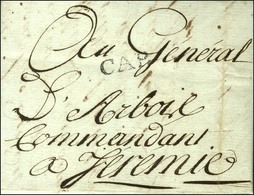 Au Général
CAP
D'Arbois
Commandant
a Jeremie